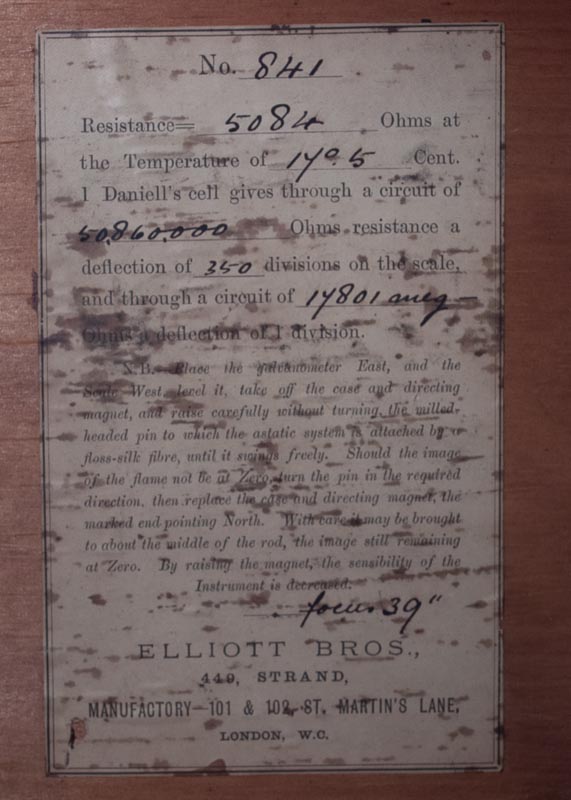 No. 841
Resistance= 5084 Ohms at
the Temperature of 17°.5 Cent.
1 Daniell's cell gives through a circuit of
50,860,000 Ohms resistance a
deflection of 350 divisions on the scale,
and through a circuit of 17801 meg-
Ohms a deflection of 1 division.
N.B.—Place the galvanometer East, and the
Scale West, level it, take off the case and directing
magnet, and raise carefully without turning, the milled-
headed pin to which the astatic system is attached by a
floss-silk fibre, until it swings freely. Should the image
of the flame not be at Zero, turn the pin in the required
direction, then replace the case and directing magnet, the
marked end pointing North. With care it may be brought
to about the middle of the rod, the image still remaining
at Zero. By raising the magnet, the sensibility of the
Instrument is decreased.
focus 39"
ELLIOTT BROS.,
449, STRAND,
MANUFACTORY—101 & 102, ST. MARTIN'S LANE,
LONDON, W.C.